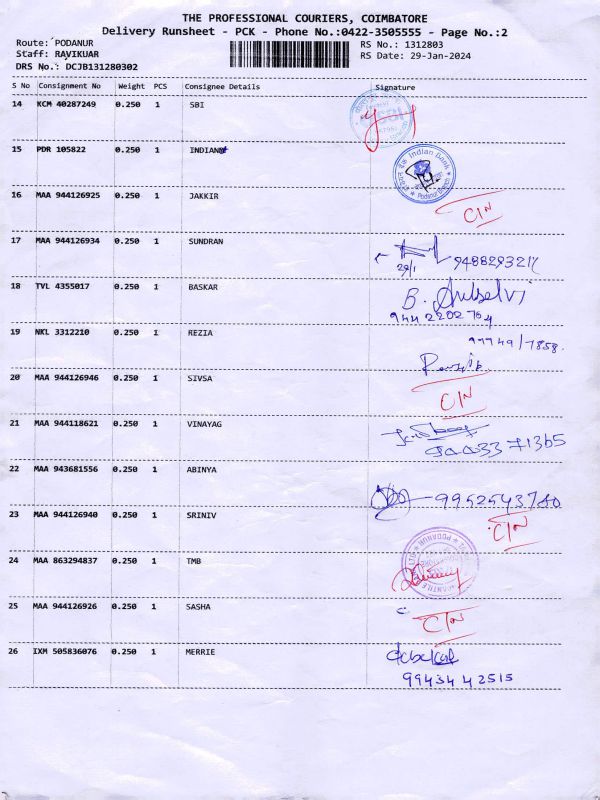 THE PROFESSIONAL COURIERS, COIMBATORE
Delivery Runsheet - PCK - Phone No.:0422-3505555 - Page No.:2
Route: PODANUR
RS No.: 1312803
Staff: RAVIKUAR
RS Date: 29-Jan-2024
DRS No.: DCJB131280302
S No Consignment No Weight PCS Consignee Details Signature
14 KCM 40287249 0.250 1 SBI
15 PDR 105822 0.250 1 INDIAN
Indian Bank
Podanur Branch
16 MAA 944126925 0.250 1 JAKKIR
C/N
17 MAA 944126934 0.250 1 SUNDRAN
29/1
18 TVL 4355017 0.250 1 BASKAR
B.
9442202764
19 NKL 3312210 0.250 1 REZIA
99949/7858.
20 MAA 944126946 0.250 1 SIVSA
C/N
21 MAA 944118621 0.250 1 VINAYAG
22 MAA 943681556 0.250 1 ABINYA
9952543780
23 MAA 944126940 0.250 1 SRINIV
C/N
24 MAA 863294837 0.250 1 TMB
PODANUR
25 MAA 944126926 0.250 1 SASHA
C/N
26 IXM 505836076 0.250 1 MERRIE
99434 42515